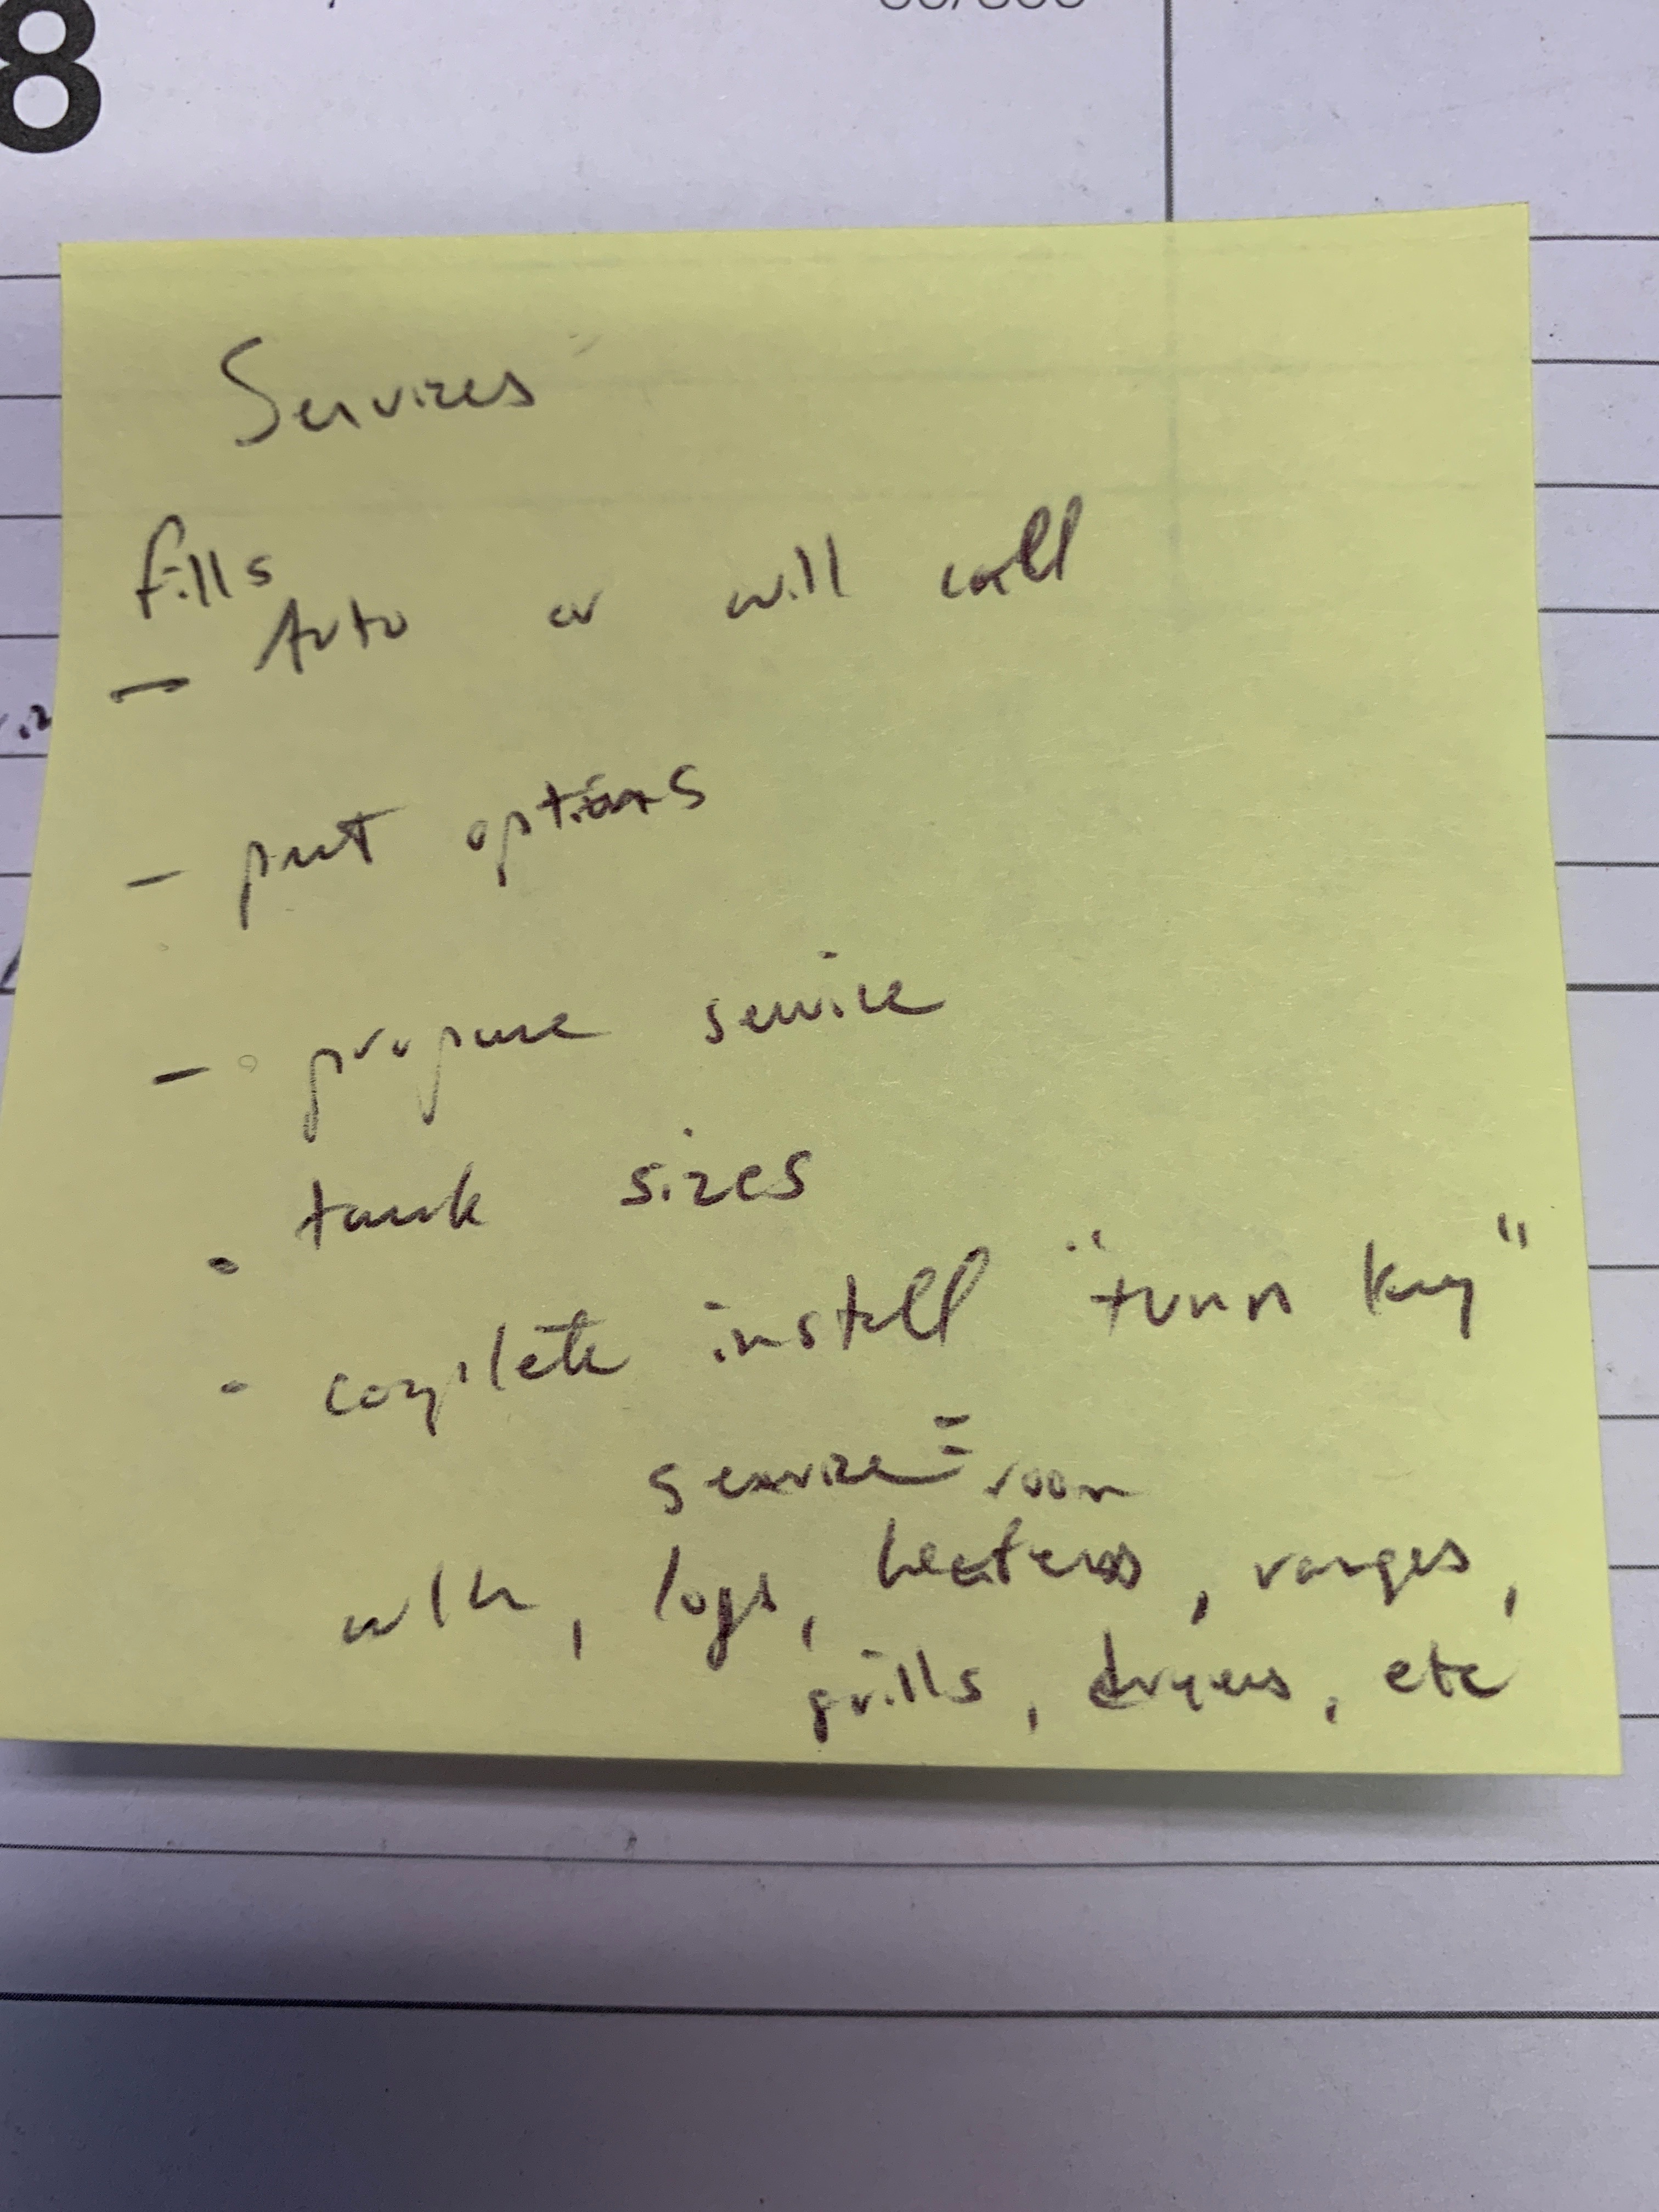 8
Services
fills
— Auto or will call
— pmt options
— propane service
• tank sizes
• complete install "turn key"
service = room
wth, logs, heaters, ranges,
grills, dryers, etc